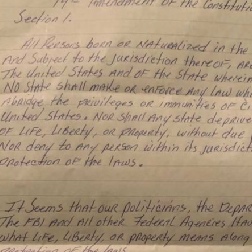 14th Amendment of the Constitution
Section 1.
All Persons born or Naturalized in the
And Subject to the jurisdiction thereof, are
The United States and of the State wherein
No State shall make or enforce any law which
Abridge the privileges or immunities of Ci
United States. Nor shall any State deprive
of Life, Liberty, or property, without due
Nor deny to any person within its jurisdiction
protection of the laws.
It Seems that our Politicians, the Depar
The FBI and All other Federal Agencies Have
what Life, Liberty, or property means along